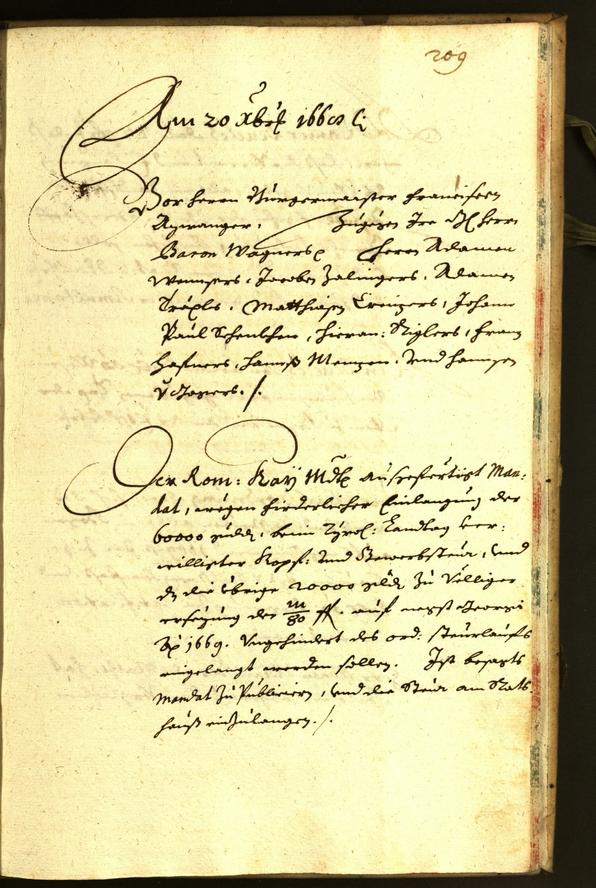 209
Am 20 Xbris 1668 ꝛc
Vor Herrn Burgermaister Francisen
Ayrwanger. Zugegen Ire Gl Herr
Baron Wagners ꝛc Herrn Adamen
Wenzers, Jacoben Zalingers, Adamen
Tröpls, Matthiasen Creizers, Johann
Paul Schenkhen, Hieran: Riglers, Franz
Hafners, Hannß Menzen, Und Hannsen
Der Rom: Kay: Mtt: außgefertigt Man:
dat, wegen firderlicher Einlangung der
60000 guldn, beim Tyrol: Landtag ver:
willigter Kopf: Und Gewerbsteur, Und
dz die ybrige 20000 gldn zu Völliger
ersezung der m/80 fl. auf negst Georgi
1669. Ungehindert des ord: Steurlaufs
eingelangt werden sollen. Ist besagts
Mandat zu Publiciern, Und die Steur am Rats
hauß einzulangen ./.